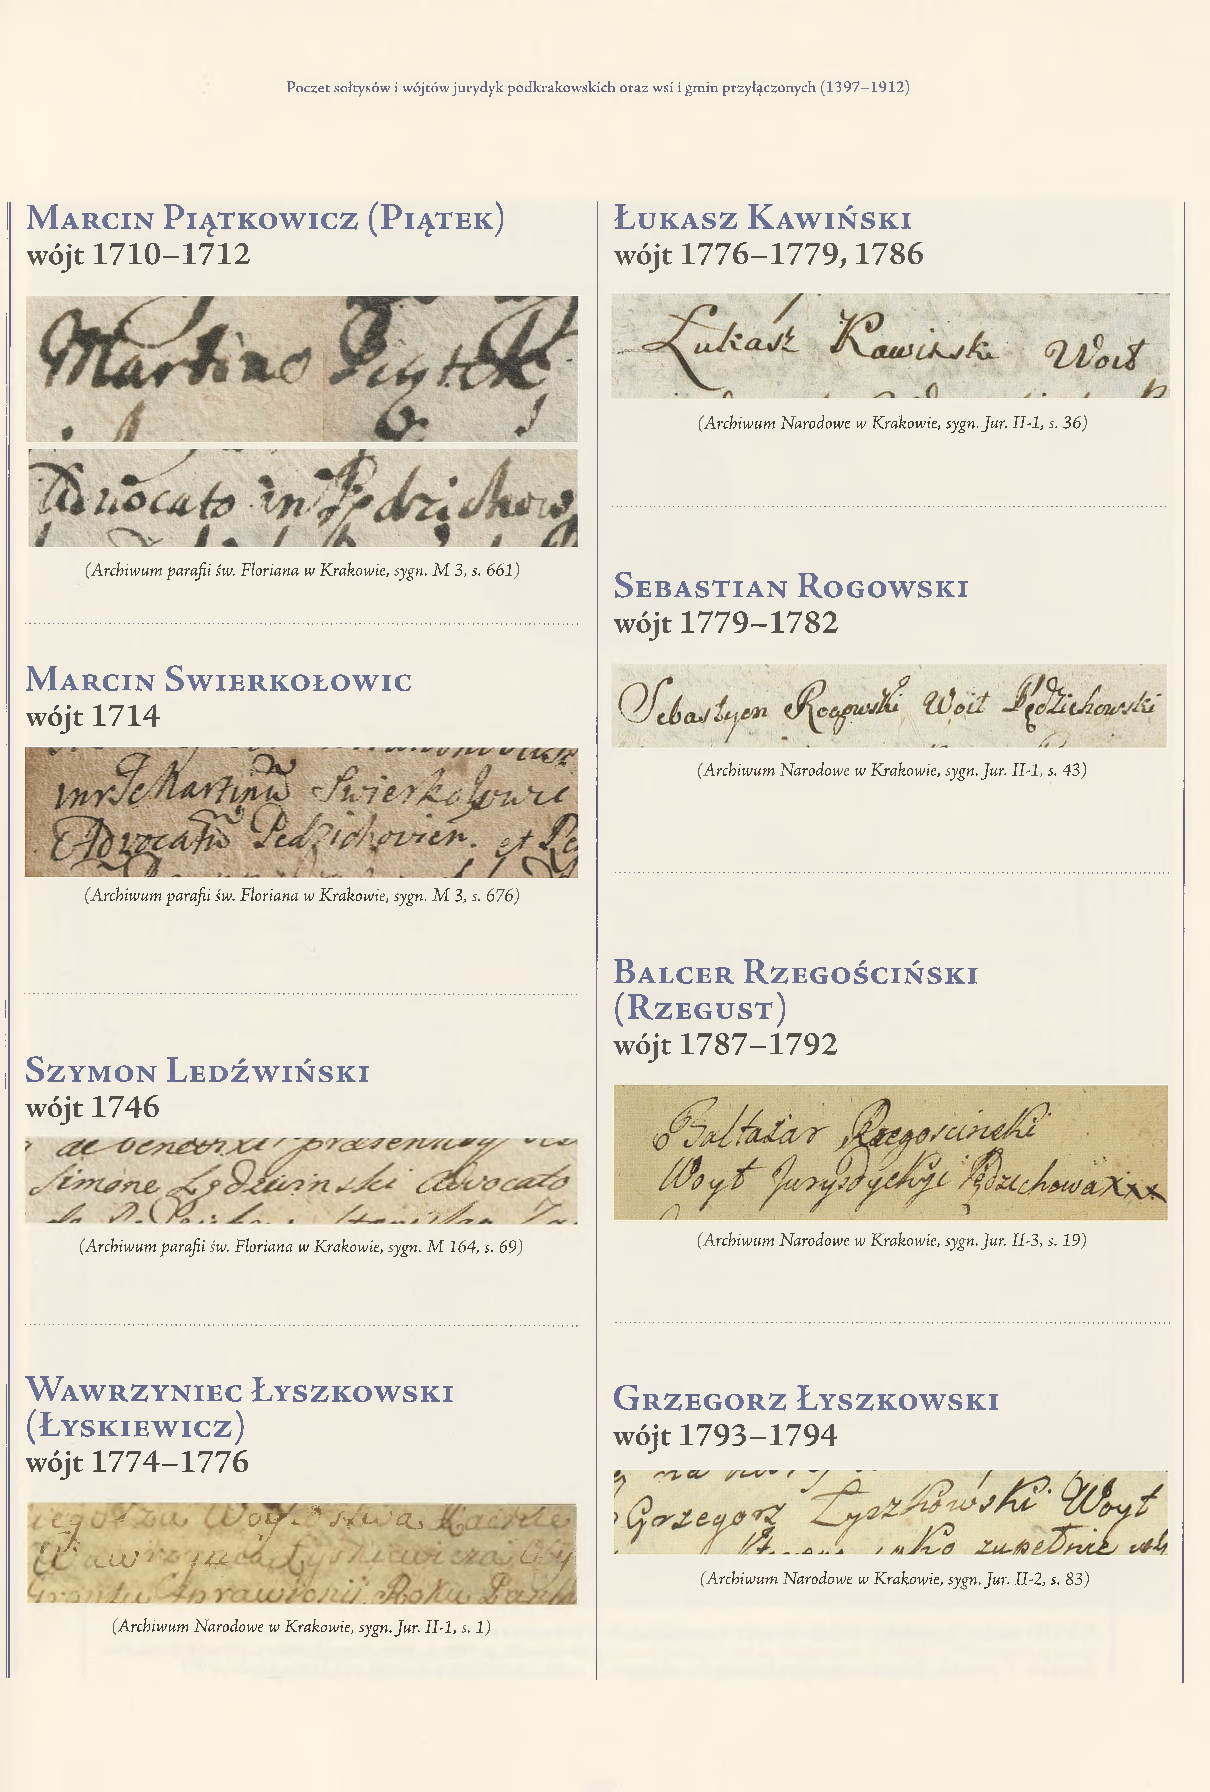 Poczet sołtysów i wójtów jurydyk podkrakowskich oraz wsi i gmin przyłączonych (1397–1912)
Marcin Piątkowicz (Piątek)
wójt 1710–1712
Martino Piątek
Advocato in Pędzichow
(Archiwum parafii św. Floriana w Krakowie, sygn. M 3, s. 661)
Marcin Swierkołowic
wójt 1714
Martinū Swierkołowic
Advocatū Pedzichovien. et
(Archiwum parafii św. Floriana w Krakowie, sygn. M 3, s. 676)
Szymon Ledźwiński
wójt 1746
Simone Lędzwinski Advocato
(Archiwum parafii św. Floriana w Krakowie, sygn. M 164, s. 69)
Wawrzyniec Łyszkowski
(Łyskiewicz)
wójt 1774–1776
Wawrzyńca Łyskiewicza
Roku
(Archiwum Narodowe w Krakowie, sygn. Jur. II-1, s. 1)
Łukasz Kawiński
wójt 1776–1779, 1786
Łukasz Kawiński Woit
(Archiwum Narodowe w Krakowie, sygn. Jur. II-1, s. 36)
Sebastian Rogowski
wójt 1779–1782
Sebastyen Rogowski Woit Pędzichowski
(Archiwum Narodowe w Krakowie, sygn. Jur. II-1, s. 43)
Balcer Rzegościński
(Rzegust)
wójt 1787–1792
Baltazar Rzegoscinski
Woyt Jurysdychyi Pędzichowa xxx
(Archiwum Narodowe w Krakowie, sygn. Jur. II-3, s. 19)
Grzegorz Łyszkowski
wójt 1793–1794
Grzegorz Łyszkowski Woyt
zupełnie
(Archiwum Narodowe w Krakowie, sygn. Jur. II-2, s. 83)